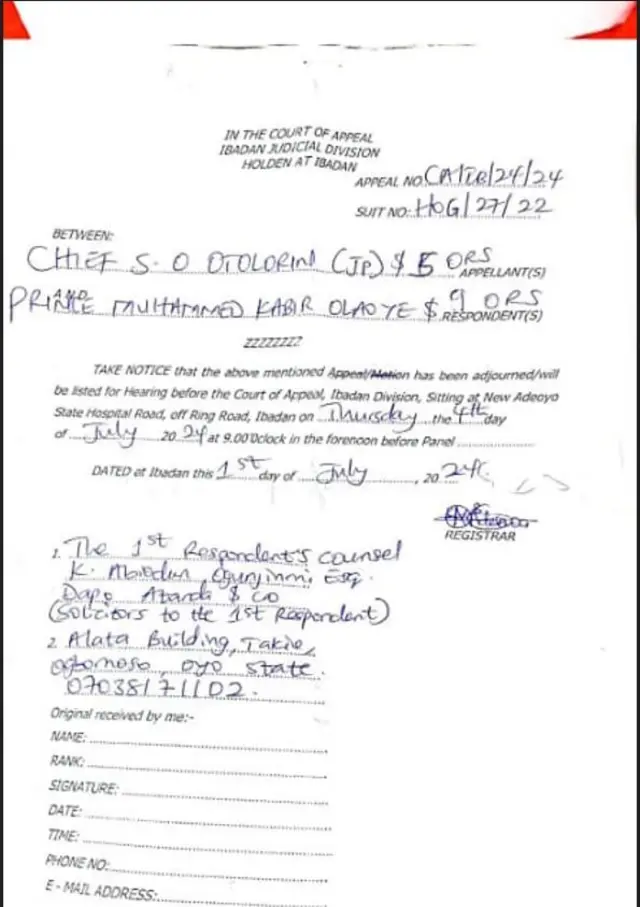 IN THE COURT OF APPEAL
IBADAN JUDICIAL DIVISION
HOLDEN AT IBADAN
APPEAL NO: CA/IB/24/24
SUIT NO: HOG/27/22
BETWEEN:
CHIEF S. O OTOLORIN (JP) $ 5 ORS APPELLANT(S)
AND
PRINCE MUHAMMED KABIR OLAOYE $ 9 ORS RESPONDENT(S)
ZZZZZZZZ
TAKE NOTICE that the above mentioned Appeal/Motion has been adjourned/will
be listed for Hearing before the Court of Appeal, Ibadan Division, Sitting at New Adeoyo
State Hospital Road, off Ring Road, Ibadan on Thursday the 4th day
of July 2024 at 9.00'0clock in the forenoon before Panel
DATED at Ibadan this 1st day of July, 2024
REGISTRAR
1. The 1st Respondent's counsel
K. Abiodun Ogunjinmi Esq.
Dapo Atanda $ co
(Solicitors to the 1st Respondent)
2. Alata Building, Takie,
ogbomoso, oyo state.
07038171102.
Original received by me:-
NAME:
RANK:
SIGNATURE:
DATE:
TIME:
PHONE NO:
E - MAIL ADDRESS: